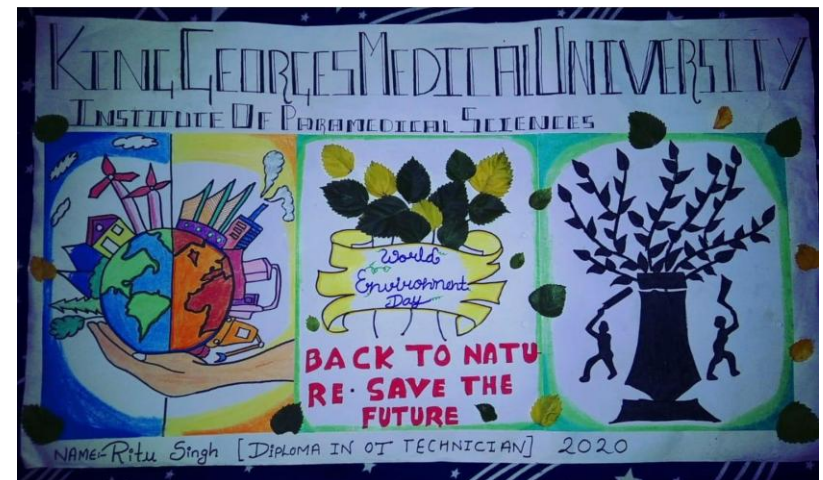 KING GEORGES MEDICAL UNIVERSITY
INSTITUTE OF PARAMEDICAL SCIENCES
World
Environment
Day
BACK TO NATU
RE. SAVE THE
FUTURE
NAME:- Ritu Singh [DIPLOMA IN OT TECHNICIAN] 2020